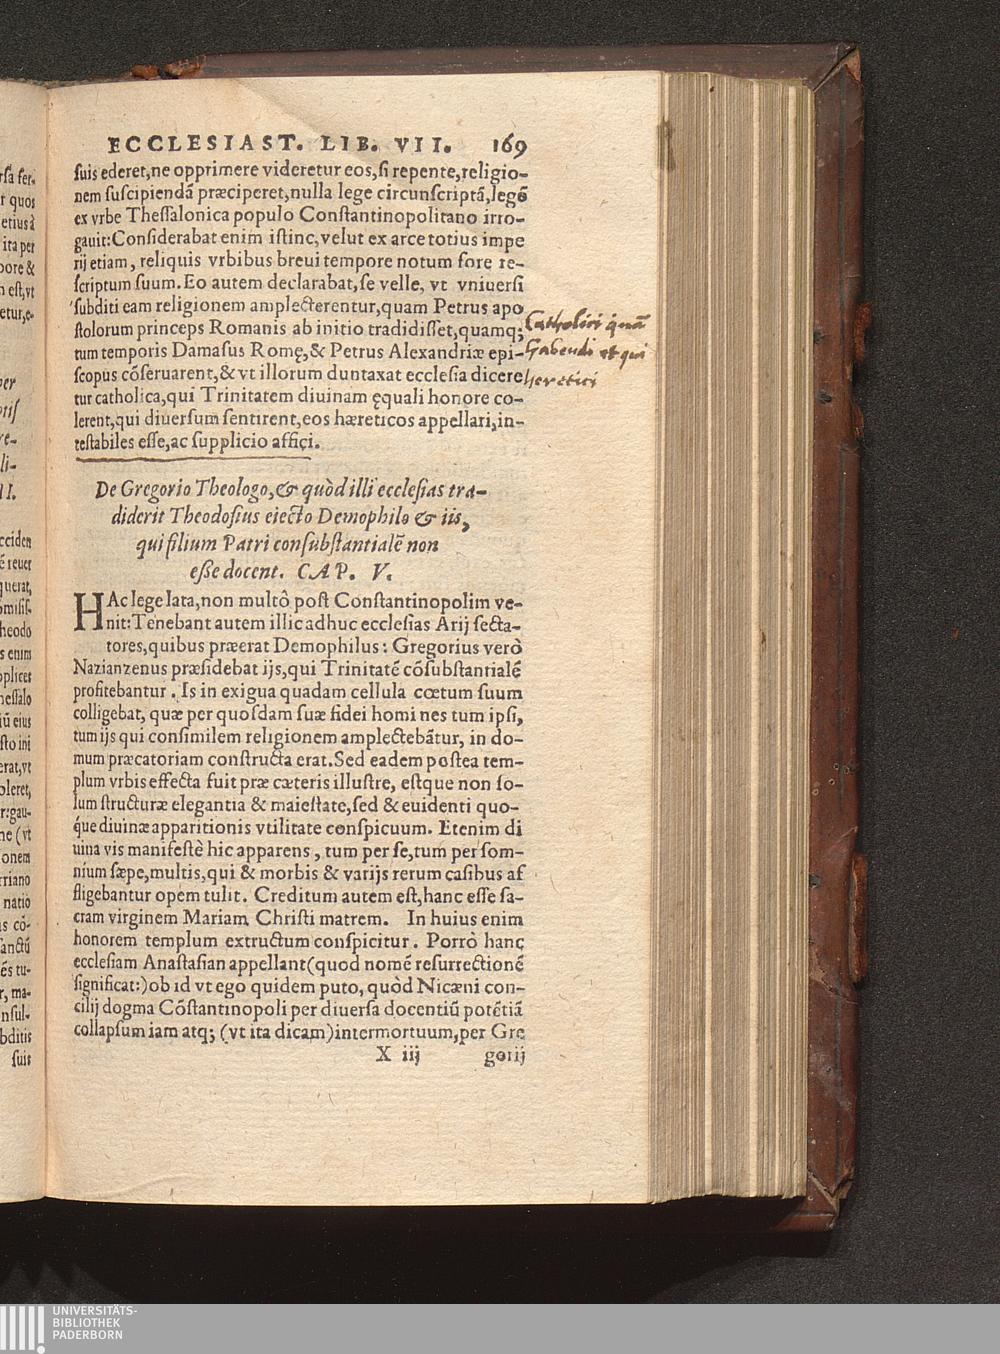 ECCLESIAST. LIB. VII. 169
suis ederet, ne opprimere videretur eos, si repente, religio-
nem suscipiendã præciperet, nulla lege circunscriptã, legẽ
ex vrbe Thessalonica populo Constantinopolitano irro-
gauit: Considerabat enim istinc, velut ex arce totius impe
rij etiam, reliquis vrbibus breui tempore notum fore re-
scriptum suum. Eo autem declarabat, se velle, vt vniuersi
subditi eam religionem amplecterentur, quam Petrus apo
stolorum princeps Romanis ab initio tradidisset, quamq;
tum temporis Damasus Romę, & Petrus Alexandriæ epi-
scopus cõseruarent, & vt illorum duntaxat ecclesia dicere
tur catholica, qui Trinitatem diuinam ęquali honore co-
lerent, qui diuersum sentirent, eos hæreticos appellari, in-
testabiles esse, ac supplicio affici.
Catholici
habendi et qui
heretici
De Gregorio Theologo, & quòd illi ecclesias tra-
diderit Theodosius eiecto Demophilo & iis,
qui filium Patri consubstantialẽ non
esse docent. CAP. V.
HAc lege lata, non multô post Constantinopolim ve-
nit: Tenebant autem illic adhuc ecclesias Arij secta-
tores, quibus præerat Demophilus: Gregorius verò
Nazianzenus præsidebat ijs, qui Trinitatẽ cõsubstantialẽ
profitebantur. Is in exigua quadam cellula cœtum suum
colligebat, quæ per quosdam suæ fidei homi nes tum ipsi,
tum ijs qui consimilem religionem amplectebãtur, in do-
mum præcatoriam constructa erat. Sed eadem postea tem-
plum vrbis effecta fuit præ cæteris illustre, estque non so-
lum structuræ elegantia & maiestate, sed & euidenti quo-
que diuinæ apparitionis vtilitate conspicuum. Etenim di
uina vis manifestè hic apparens, tum per se, tum per som-
nium sæpe, multis, qui & morbis & varijs rerum casibus af
fligebantur opem tulit. Creditum autem est, hanc esse sa-
cram virginem Mariam Christi matrem. In huius enim
honorem templum extructum conspicitur. Porrò hanc
ecclesiam Anastasian appellant (quod nomẽ resurrectionẽ
significat:) ob id vt ego quidem puto, quòd Nicæni con-
cilij dogma Cõstantinopoli per diuersa docentiũ potẽtiã
collapsum iam atq; (vt ita dicam) intermortuum, per Gre
X iij gorij
UNIVERSITÄTS-
BIBLIOTHEK
PADERBORN